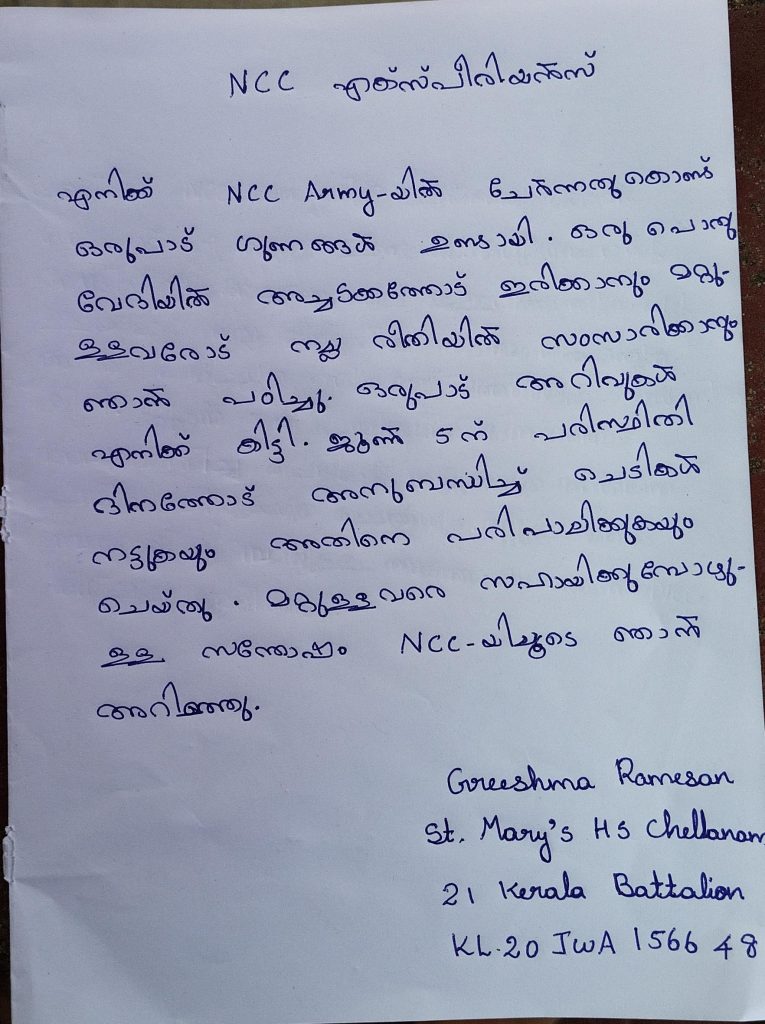 NCC എക്സ്പീരിയൻസ്
എനിക്ക് NCC Army-യിൽ ചേർന്നതുകൊണ്ട്
ഒരുപാട് ഗുണങ്ങൾ ഉണ്ടായി. ഒരു പൊതു
വേദിയിൽ അച്ചടക്കത്തോട് ഇരിക്കാനും മറ്റു-
ള്ളവരോട് നല്ല രീതിയിൽ സംസാരിക്കാനും
ഞാൻ പഠിച്ചു. ഒരുപാട് അറിവുകൾ
എനിക്ക് കിട്ടി. ജൂൺ 5ന് പരിസ്ഥിതി
ദിനത്തോട് അനുബന്ധിച്ച് ചെടികൾ
നട്ടുകയും അതിനെ പരിപാലിക്കുകയും
ചെയ്തു. മറ്റുള്ളവരെ സഹായിക്കുമ്പോഴു-
ള്ള സന്തോഷം NCC-യിലൂടെ ഞാൻ
അറിഞ്ഞു.
Greeshma Ramesan
St. Mary's HS Chellanam
21 Kerala Battalion
KL.20 JWA 1566 48